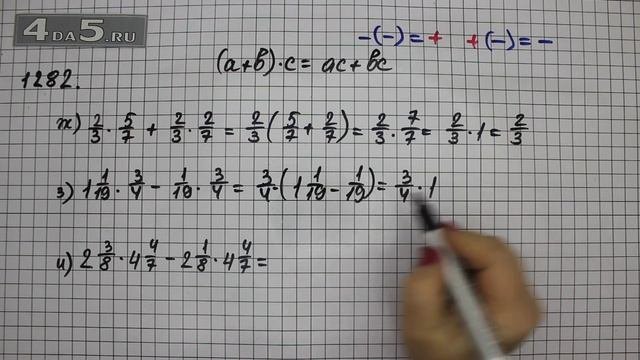 4DA5.RU
-(-)=+ +(-)=-
(a+b)·c=ac+bc
1282.
ж) 2/3 · 5/7 + 2/3 · 2/7 = 2/3 (5/7 + 2/7) = 2/3 · 7/7 = 2/3 · 1 = 2/3
з) 1 1/19 · 3/4 - 1/19 · 3/4 = 3/4 · (1 1/19 - 1/19) = 3/4 · 1
и) 2 3/8 · 4 4/7 - 2 1/8 · 4 4/7 =